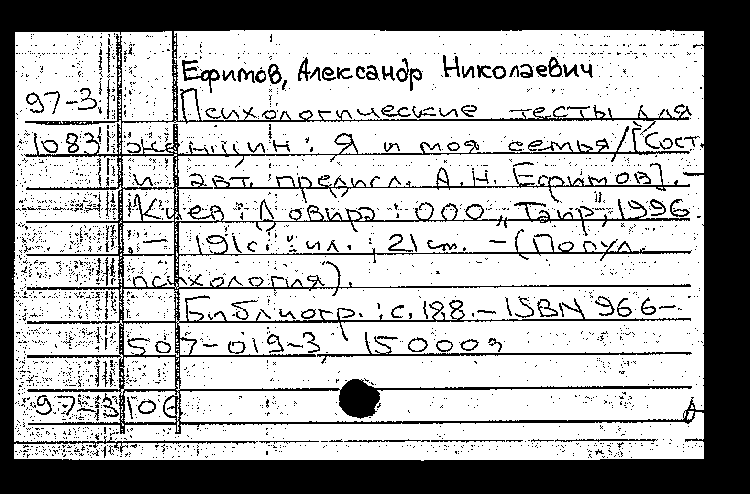 Ефимов, Александр Николаевич
97-3 Психологические тесты для
1083 женщин: Я и моя семья/[Сост.
и авт. предисл. А.Н. Ефимов]. -
Киев: Довира: ООО „Таир", 1996
. - 191с.: ил.; 21см. - (Попул.
психология).
Библиогр.: с. 188. - ISBN 966-
507-019-3, 15000э
97-13106